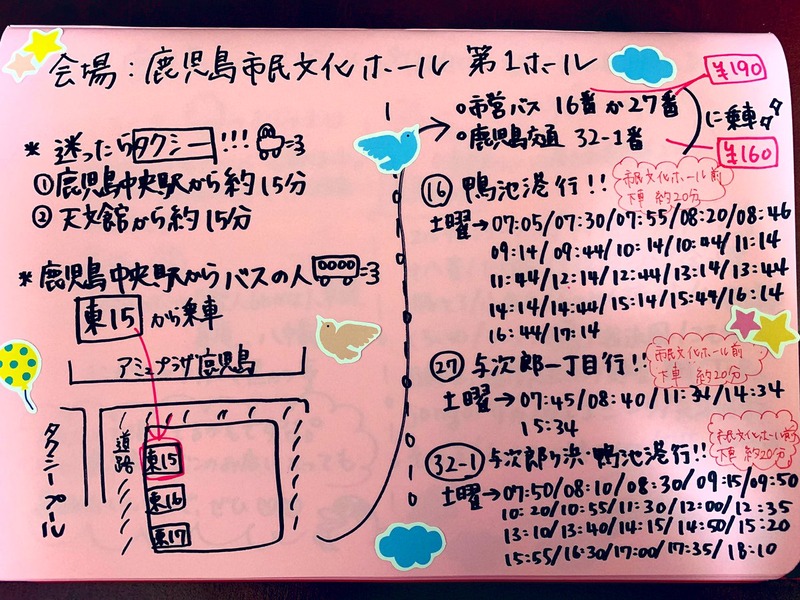 会場：鹿児島市民文化ホール 第1ホール
* 迷ったらタクシー!!!
① 鹿児島中央駅から約15分
② 天文館から約15分
* 鹿児島中央駅からバスの人
東15から乗車
アミュプラザ鹿児島
タクシープール
道路
東15
東16
東17
○市営バス 16番か27番
○鹿児島交通 32-1番
に乗車
¥190
¥160
⑯ 鴨池港行!!
市民文化ホール前
下車 約20分
土曜→07:05/07:30/07:55/08:20/08:46
09:14/09:44/10:14/10:44/11:14
11:44/12:14/12:44/13:14/13:44
14:14/14:44/15:14/15:44/16:14
16:44/17:14
㉗ 与次郎一丁目行!!
市民文化ホール前
下車 約20分
土曜→07:45/08:40/11:34/14:34
15:34
32-1 与次郎ヶ浜・鴨池港行!!
市民文化ホール前
下車 約20分
土曜→07:50/08:10/08:30/09:15/09:50
10:20/10:55/11:30/12:00/12:35
13:10/13:40/14:15/14:50/15:20
15:55/16:30/17:00/17:35/18:10